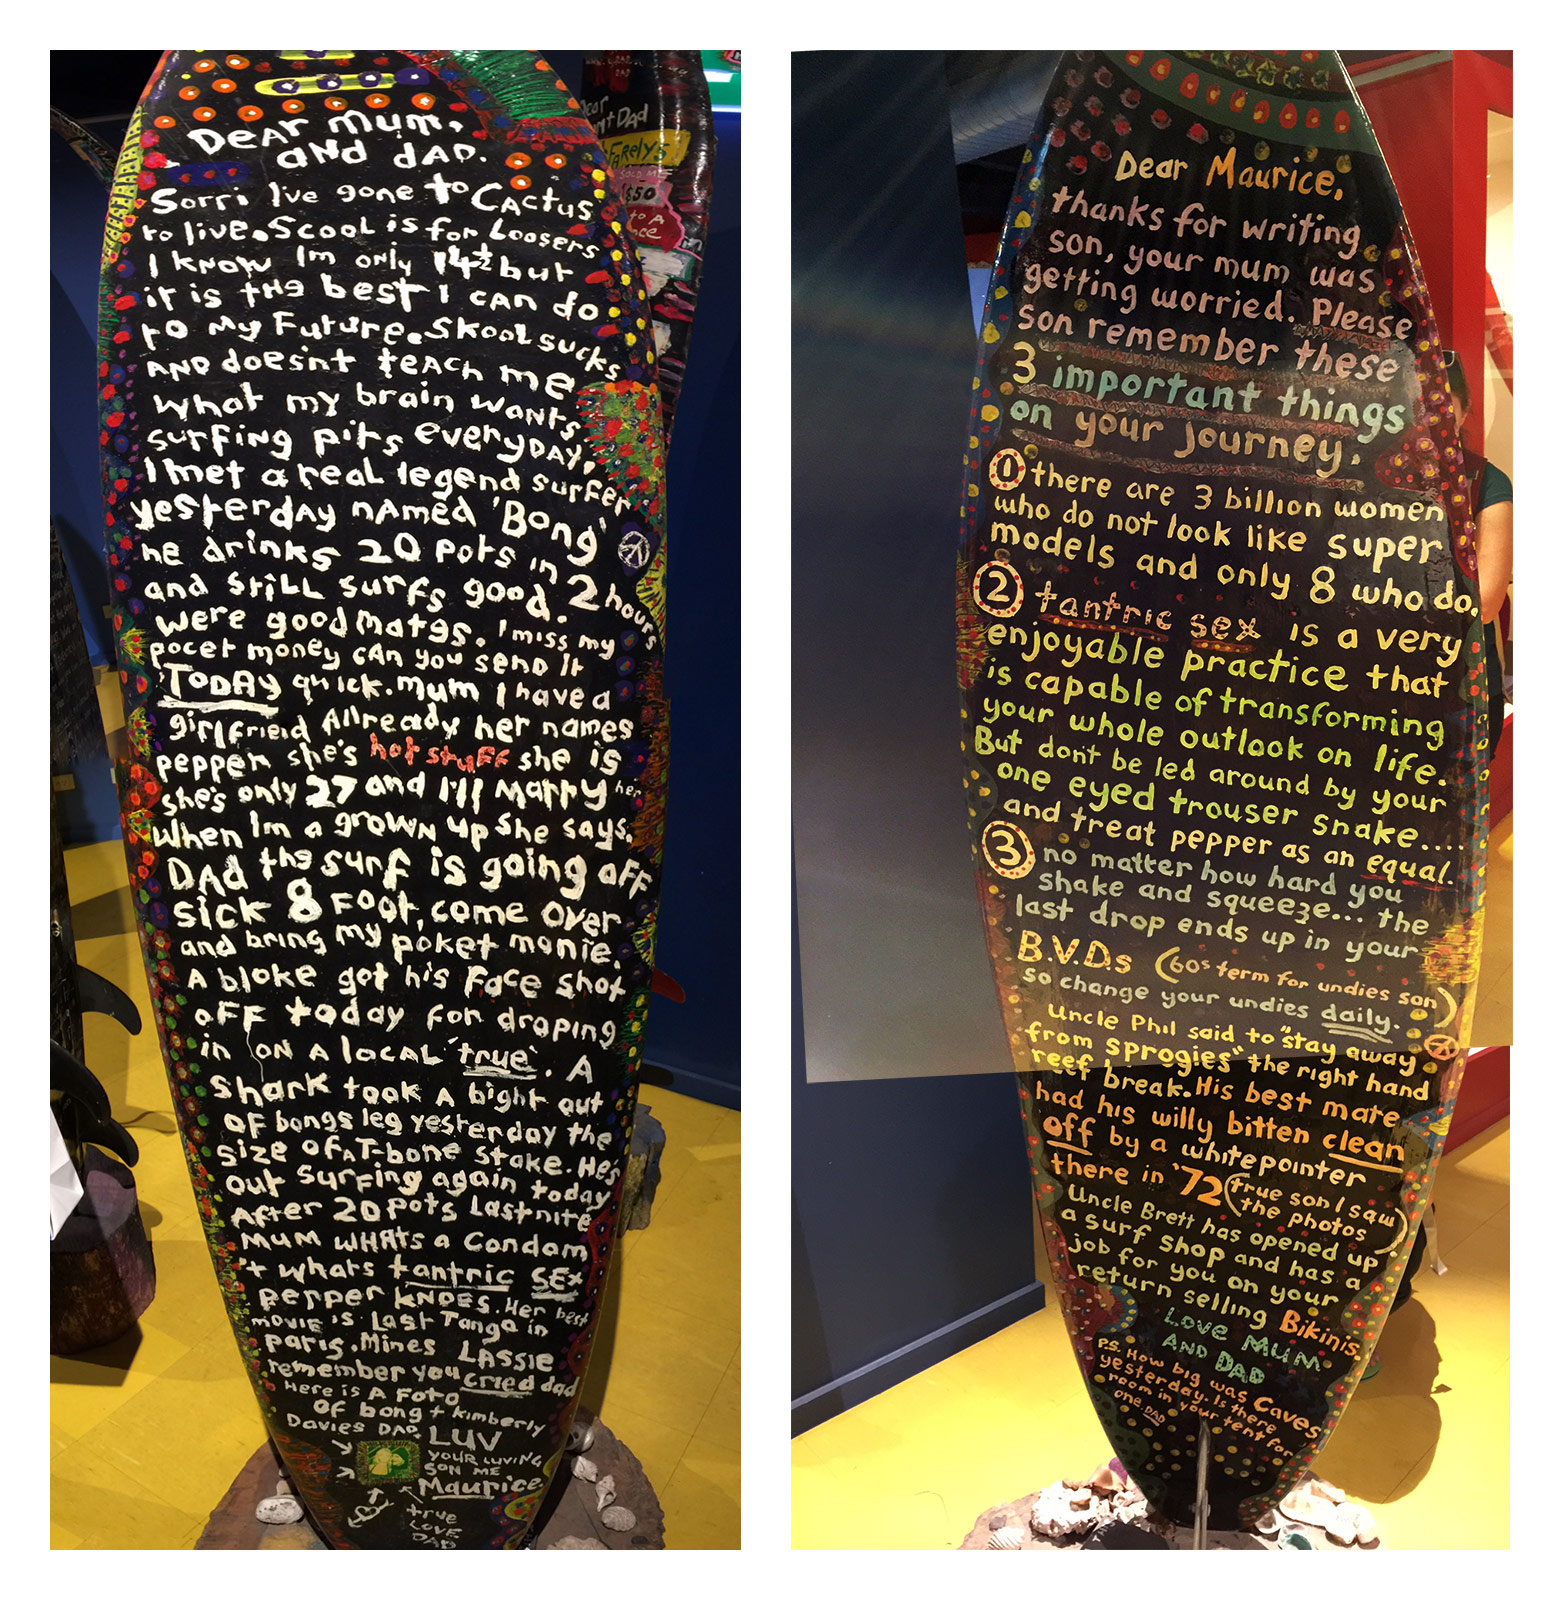 Dear Mum,
and dad.
Sorri Ive gone to Cactus
to live. Scool is for Loosers
I know Im only 14½ but
it is the best I can do
to my Future. Skool sucks
AND doesnt teach me
what my brain wants,
surfing pits everyday,
I met a real legend surfer
yesterday named 'Bong'
he drinks 20 pots in 2 hours
and still surfs good.
were good matgs. I miss my
pocet money can you send it
TODAY quick. mum I have a
girlfrieid Allready her names
pepper she's hot stuff she is
she's only 27 and I'll marry her
when Im a grown up she says.
DAd the surf is going off
sick 8 Foot, come over
and bring my poket monie.
A bloke got his Face shot
off today for droping
in on A local 'true'. A
Shark took A bight out
of bongs leg yesterday the
size of A T-bone stake. He's
out surfing again today
After 20 pots Lastnite
Mum whats a Condom
'+ whats tantric sex
pepper knoes. Her best
movie is Last Tanga in
paris. Mines LASSIE
remember you cried dad
Here is A Foto
of bong + kimberly
Davies DAD. LUV
YOUR LUVING
SON ME
Maurice.
true
LOVE
DAD
Dear
Dad
Farelys
SOLD ME
$50
to A
Dear Maurice,
thanks for writing
son, your mum was
getting worried. Please
son remember these
3 important things
on your journey.
① there are 3 billion women
who do not look like super
models and only 8 who do.
② tantric sex is a very
enjoyable practice that
is capable of transforming
your whole outlook on life.
But don't be led around by your
one eyed trouser snake....
and treat pepper as an equal.
③ no matter how hard you
shake and squeeze... the
last drop ends up in your
B.V.D.s (60s term for undies son)
so change your undies daily.
Uncle Phil said to "stay away
from Sprogies" the right hand
reef break. His best mate
had his willy bitten clean
off by a whitepointer
there in '72 (true son I saw
the photos)
Uncle Brett has opened up
a surf shop and has a
job for you on your
return selling Bikinis.
LOVE MUM
AND DAD
P.S. How big was Caves
yesterday. Is there
room in your tent for
one. DAD